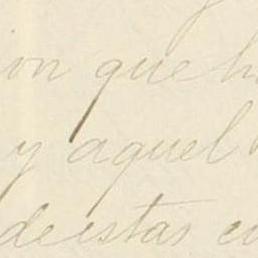 ion que h
y aquel
de estas co